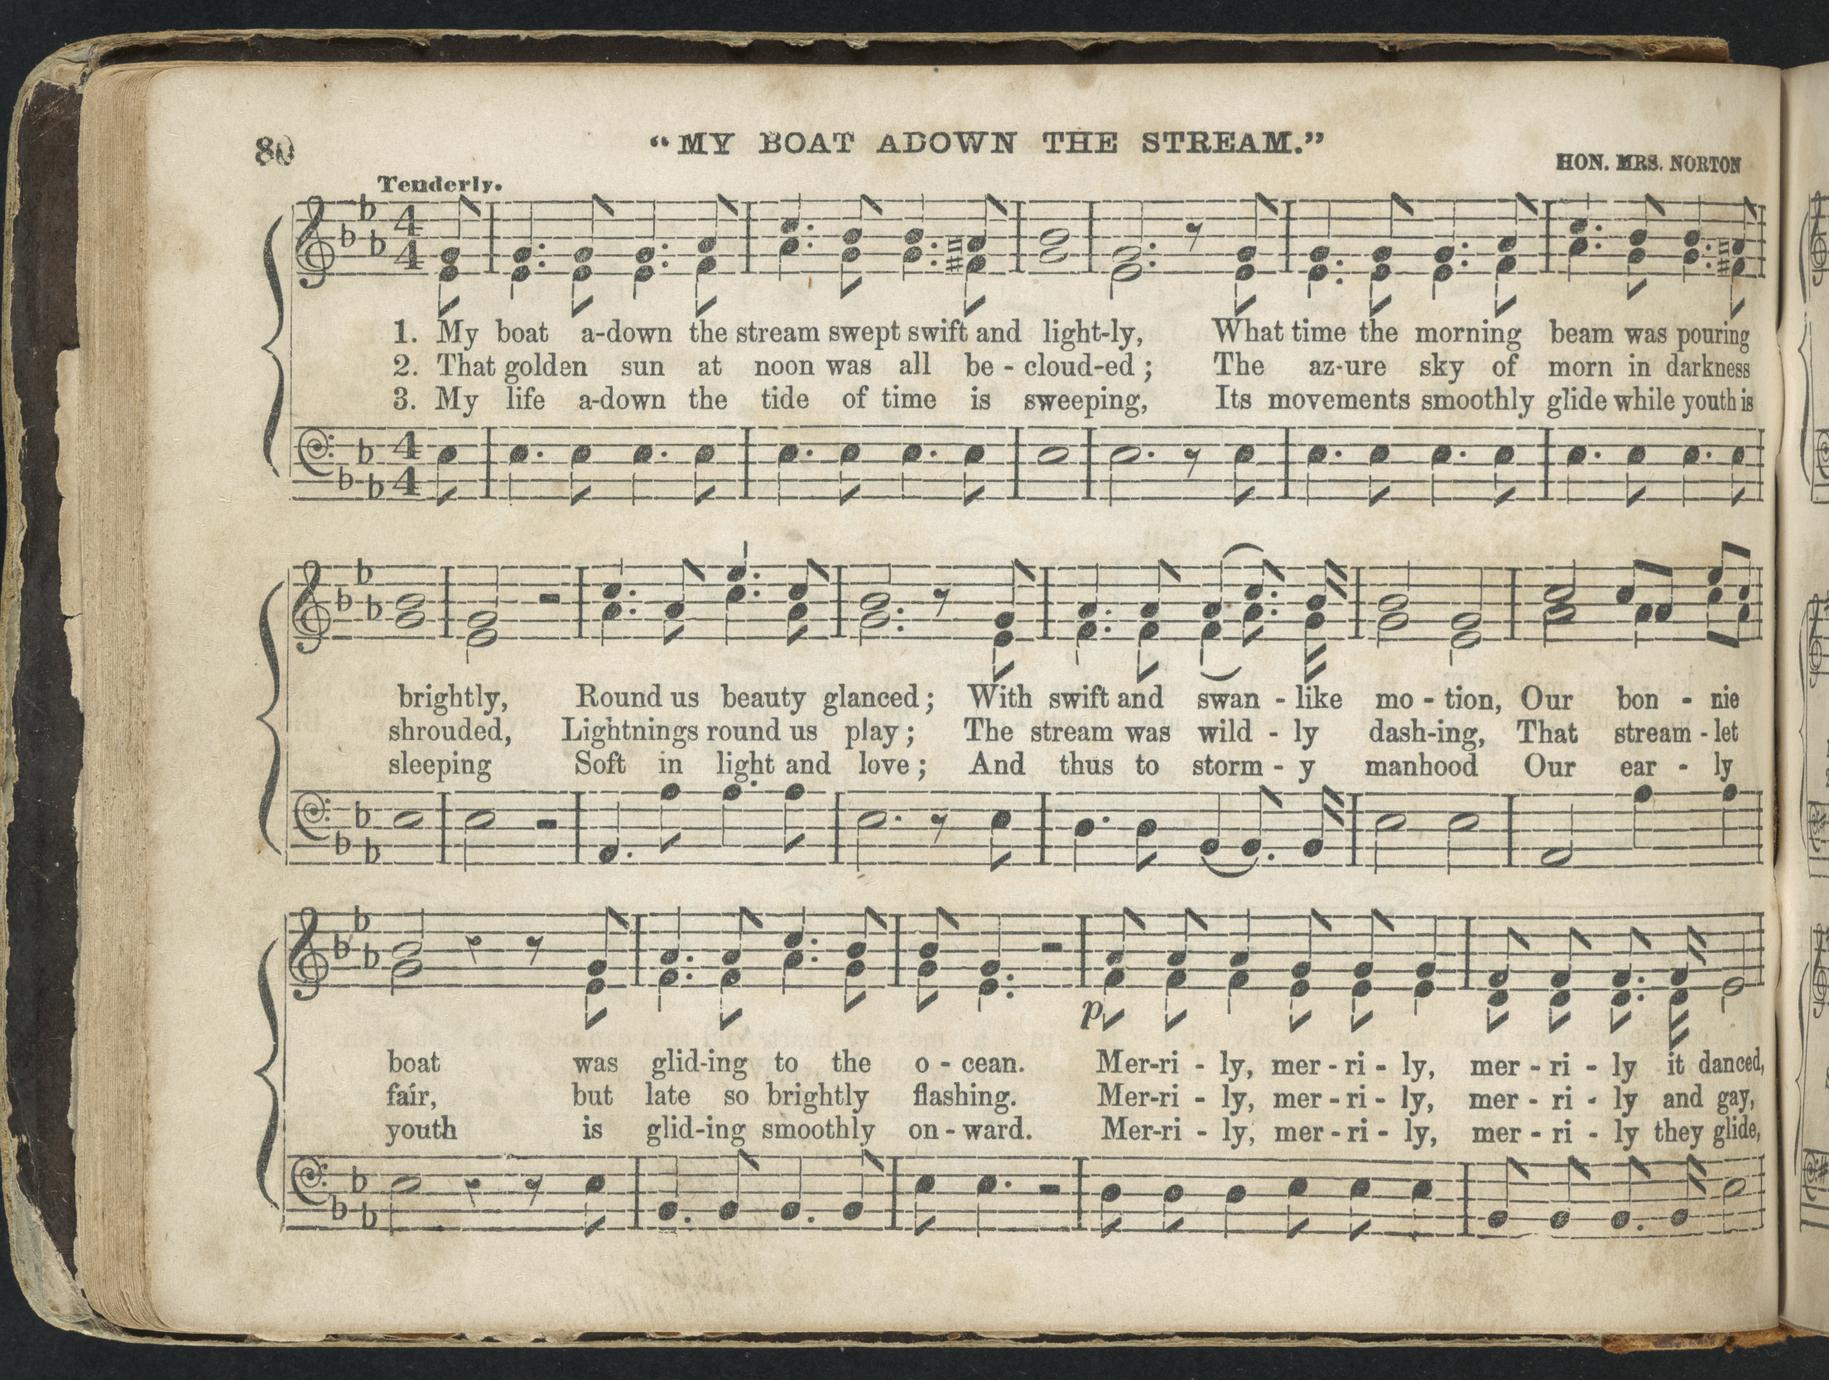 80
"MY BOAT ADOWN THE STREAM."
HON. MRS. NORTON
Tenderly.
4
4
1. My boat a-down the stream swept swift and light-ly, What time the morning beam was pouring
2. That golden sun at noon was all be - cloud-ed ; The az-ure sky of morn in darkness
3. My life a-down the tide of time is sweeping, Its movements smoothly glide while youth is
4
4
brightly, Round us beauty glanced ; With swift and swan - like mo - tion, Our bon - nie
shrouded, Lightnings round us play ; The stream was wild - ly dash-ing, That stream - let
sleeping Soft in light and love ; And thus to storm - y manhood Our ear - ly
p
boat was glid-ing to the o - cean. Mer-ri - ly, mer - ri - ly, mer - ri - ly it danced,
fair, but late so brightly flashing. Mer-ri - ly, mer - ri - ly, mer - ri - ly and gay,
youth is glid-ing smoothly on - ward. Mer-ri - ly, mer - ri - ly, mer - ri - ly they glide,